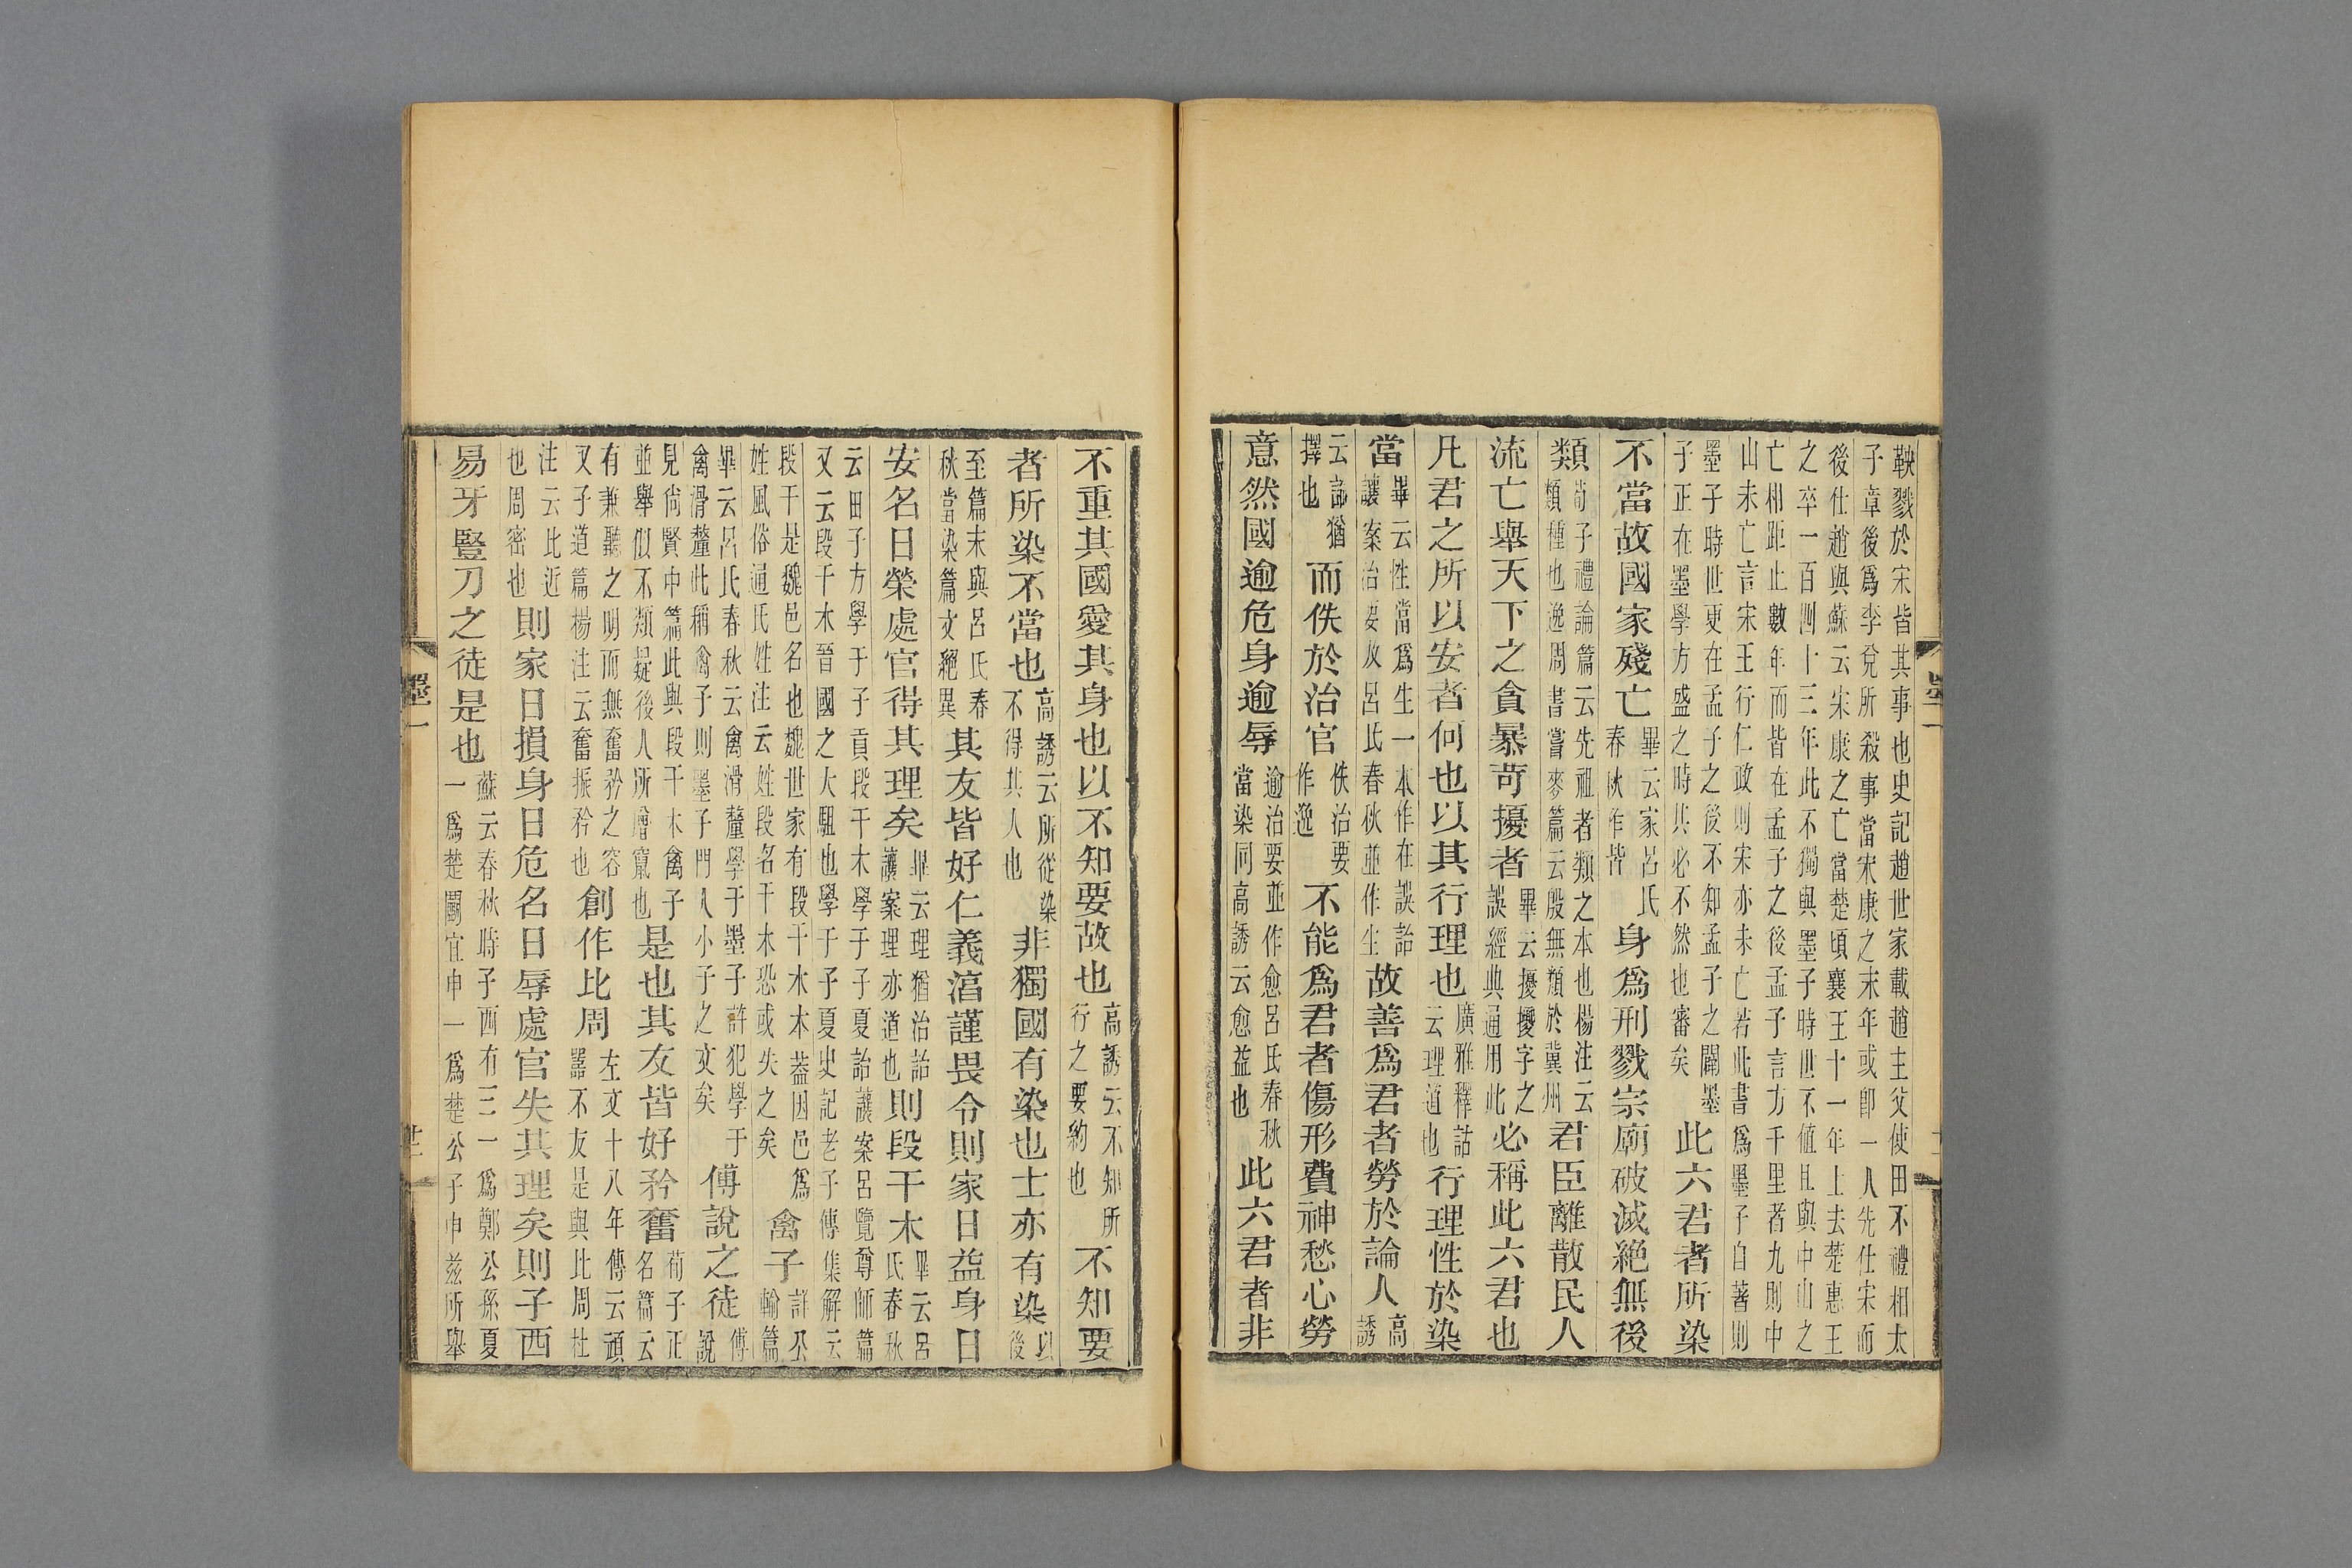 鞅戮於宋皆其事也史記趙世家載趙主父使田不禮相太
子章後爲李兌所殺事當宋康之末年或卽一人先仕宋而
後仕趙與蘇云宋康之亡當楚頃襄王十一年上去楚惠王
之卒一百四十三年此不獨與墨子時世不値且與中山之
亡相距止數年而皆在孟子之後孟子言方千里者九則中
山未亡言宋王行仁政則宋亦未亡若此書爲墨子自著則
墨子時世更在孟子之後不知孟子之闢墨
子正在墨學方盛之時其必不然也審矣
此六君者所染
不當故國家殘亡
畢云家呂氏
春秋作皆
身爲刑戮宗廟破滅絕無後
類
荀子禮論篇云先祖者類之本也楊注云
類種也逸周書嘗麥篇云殷無類於冀州
君臣離散民人
流亡舉天下之貪暴苛擾者
畢云擾擾字之
誤經典通用此
必稱此六君也
凡君之所以安者何也以其行理也
廣雅釋詁
云理道也
行理性於染
當
畢云性當爲生一本作在誤詒
讓案治要及呂氏春秋並作生
故善爲君者勞於論人
高誘
云論猶
擇也
而佚於治官
佚治要
作逸
不能爲君者傷形費神愁心勞
意然國逾危身逾辱
逾治要並作愈呂氏春秋
當染同高誘云愈益也
此六君者非
墨一
不重其國愛其身也以不知要故也
高誘云不知所
行之要約也
不知要
者所染不當也
高誘云所從染
不得其人也
非獨國有染也士亦有染
以
後
至篇末與呂氏春
秋當染篇文絕異
其友皆好仁義湻謹畏令則家日益身日
安名日榮處官得其理矣
畢云理猶治詒
讓案理亦道也
則段干木
畢云呂
氏春秋
云田子方學于子貢段干木學于子夏詒讓案呂覽尊師篇
又云段干木晉國之大駔也學于子夏史記老子傳集解云
段干是魏邑名也魏世家有段干木本葢因邑爲
姓風俗通氏姓注云姓段名干木恐或失之矣
禽子
詳公
輸篇
畢云呂氏春秋云禽滑釐學于墨子許犯學于
禽滑釐此稱禽子則墨子門人小子之文矣
傅說之徒
傅
說
見尙賢中篇此與段干木禽子
並舉似不類疑後人所增竄也
是也其友皆好矜奮
荀子正
名篇云
有兼聽之明而無奮矜之容
又子道篇楊注云奮振矜也
創作比周
左文十八年傳云頑
嚚不友是與比周杜
注云比近
也周密也
則家日損身日危名日辱處官失其理矣則子西
易牙豎刀之徒是也
蘇云春秋時子西有三一爲鄭公孫夏
一爲楚鬭宜申一爲楚公子申茲所舉
墨一